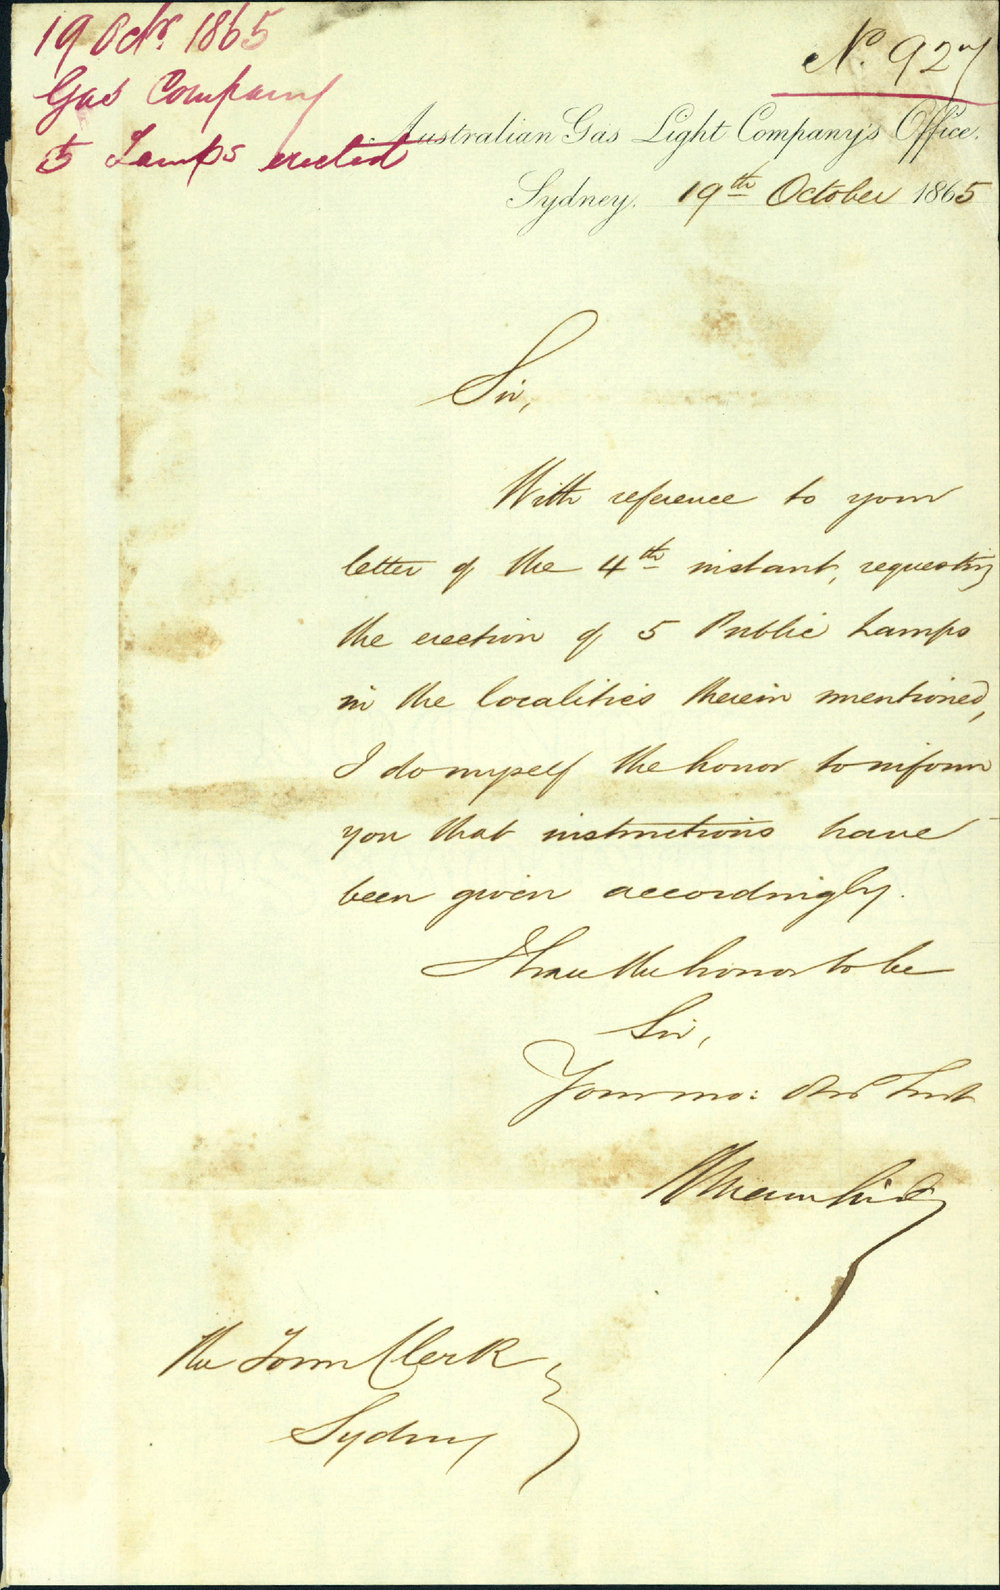 19 Octr. 1865
Gas Company
5 Lamps erected
No. 927
Australian Gas Light Company's Office.
Sydney. 19th October 1865
Sir,
With reference to your
letter of the 4th instant, requesting
the erection of 5 Public Lamps
in the localities therein mentioned,
I do myself the honor to inform
you that instructions have
been given accordingly.
I have the honor to be
Sir,
Your mo: Obd Servt
The Town Clerk
Sydney